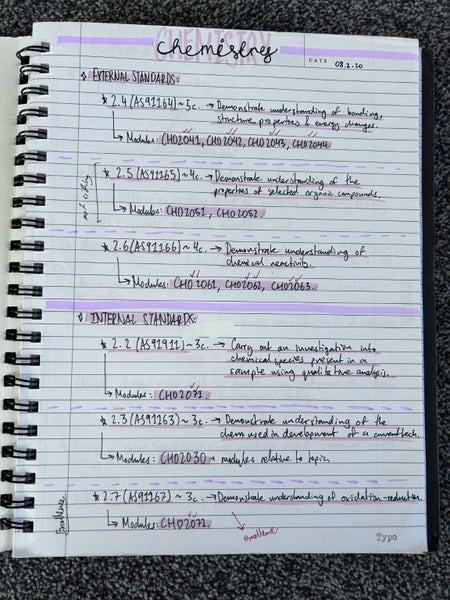 CHEMISTRY
Chemistry
DATE 03.2.20
EXTERNAL STANDARDS:
* 2.4 (AS91164) ~ 5c. → Demonstrate understanding of bonding,
structure, properties & energy changes.
→ Modules: CHO2041, CHO2042, CHO2043, CHO2044.
* 2.5 (AS91165) ~ 4c. → Demonstrate understanding of the
properties of selected organic compounds.
→ Modules: CHO2051, CHO2052.
* 2.6 (AS91166) ~ 4c. → Demonstrate understanding of
chemical reactivity.
→ Modules: CHO2061, CHO2062, CHO2063.
INTERNAL STANDARDS:
* 2.2 (AS91911) ~ 3c. → Carry out an investigation into
chemical species present in a
sample using qualitative analysis.
→ Modules: CHO2071.
* 2.3 (AS91163) ~ 3c. → Demonstrate understanding of the
chem used in development of a current tech.
→ Modules: CHO2030 + modules relative to topic.
Excellence
* 2.7 (AS91167) ~ 3c. → Demonstrate understanding of oxidation-reduction.
→ Modules: CHO2072.
Excellence
Typo